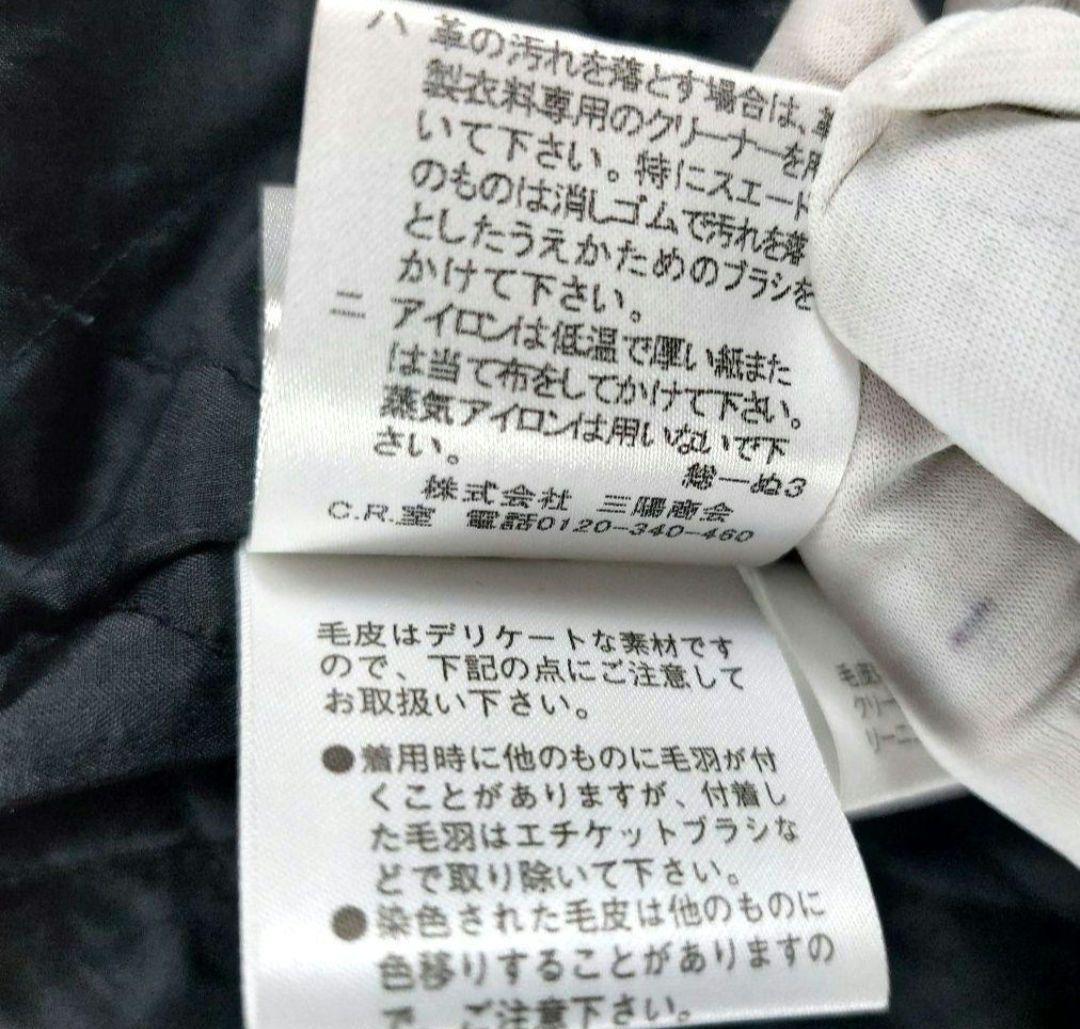 ハ 革の汚れを落とす場合は、革
製衣料専用のクリーナーを用
いて下さい。特にスエード
のものは消しゴムで汚れを落
としたうえかためのブラシを
かけて下さい。
ニ アイロンは低温で厚い紙また
は当て布をしてかけて下さい。
蒸気アイロンは用いないで下
さい。
総ーぬ3
株式会社 三陽商会
C.R.室 電話0120-340-460
毛皮はデリケートな素材です
ので、下記の点にご注意して
お取扱い下さい。
●着用時に他のものに毛羽が付
くことがありますが、付着し
た毛羽はエチケットブラシな
どで取り除いて下さい。
●染色された毛皮は他のものに
色移りすることがありますの
で、ご注意下さい。
毛皮
クリー
リーニ